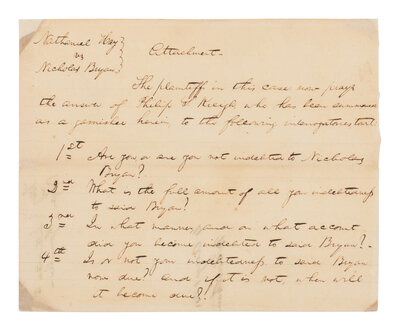 Nathaniel Hay
vs
Nicholas Bryan
Attachment
The plaintiff in this case now prays
the answer of Philip who has been summoned
as a garnishee herein to the following interogatories to wit
1st Are you or are you not indebted to Nicholas
Bryan?
2nd What is the full amount of all you indebtedness
to said Bryan?
3rd In what manner and on what account
did you become indebted to said Bryan?
4th Is or not your indebtedness to said Bryan
now due? and, if it is not, when will
it become due?